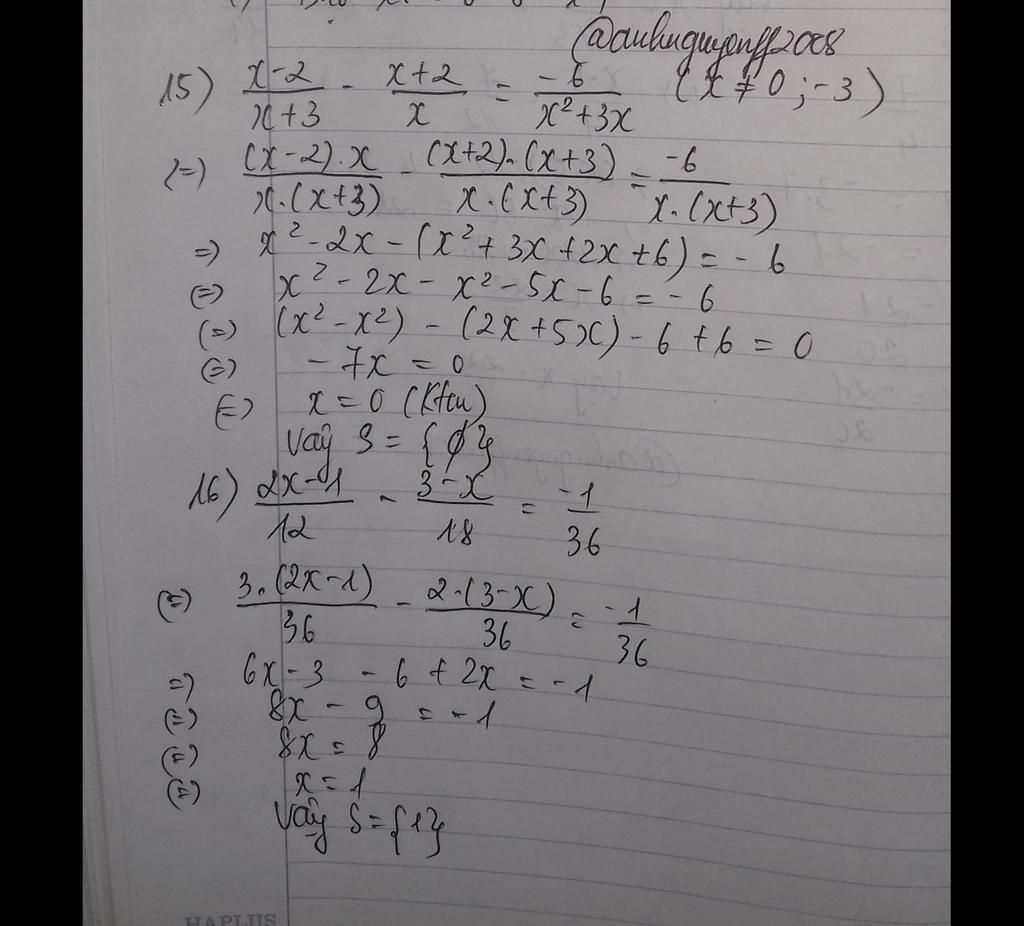 @anhnguyenff2008
15) \frac{x-2}{x+3} - \frac{x+2}{x} = \frac{-6}{x²+3x} (x ≠ 0 ; -3)
(=) \frac{(x-2).x}{x.(x+3)} - \frac{(x+2).(x+3)}{x.(x+3)} = \frac{-6}{x.(x+3)}
=) x² - 2x - (x² + 3x + 2x + 6) = - 6
(=) x² - 2x - x² - 5x - 6 = - 6
(=) (x² - x²) - (2x + 5x) - 6 + 6 = 0
(=) - 7x = 0
(=) x = 0 (Ktm)
Vậy S = { ∅ }
16) \frac{2x-1}{12} - \frac{3-x}{18} = \frac{-1}{36}
(=) \frac{3.(2x-1)}{36} - \frac{2.(3-x)}{36} = \frac{-1}{36}
=) 6x - 3 - 6 + 2x = - 1
(=) 8x - 9 = - 1
(=) 8x = 8
(=) x = 1
Vậy S = {1}
HAPLUS